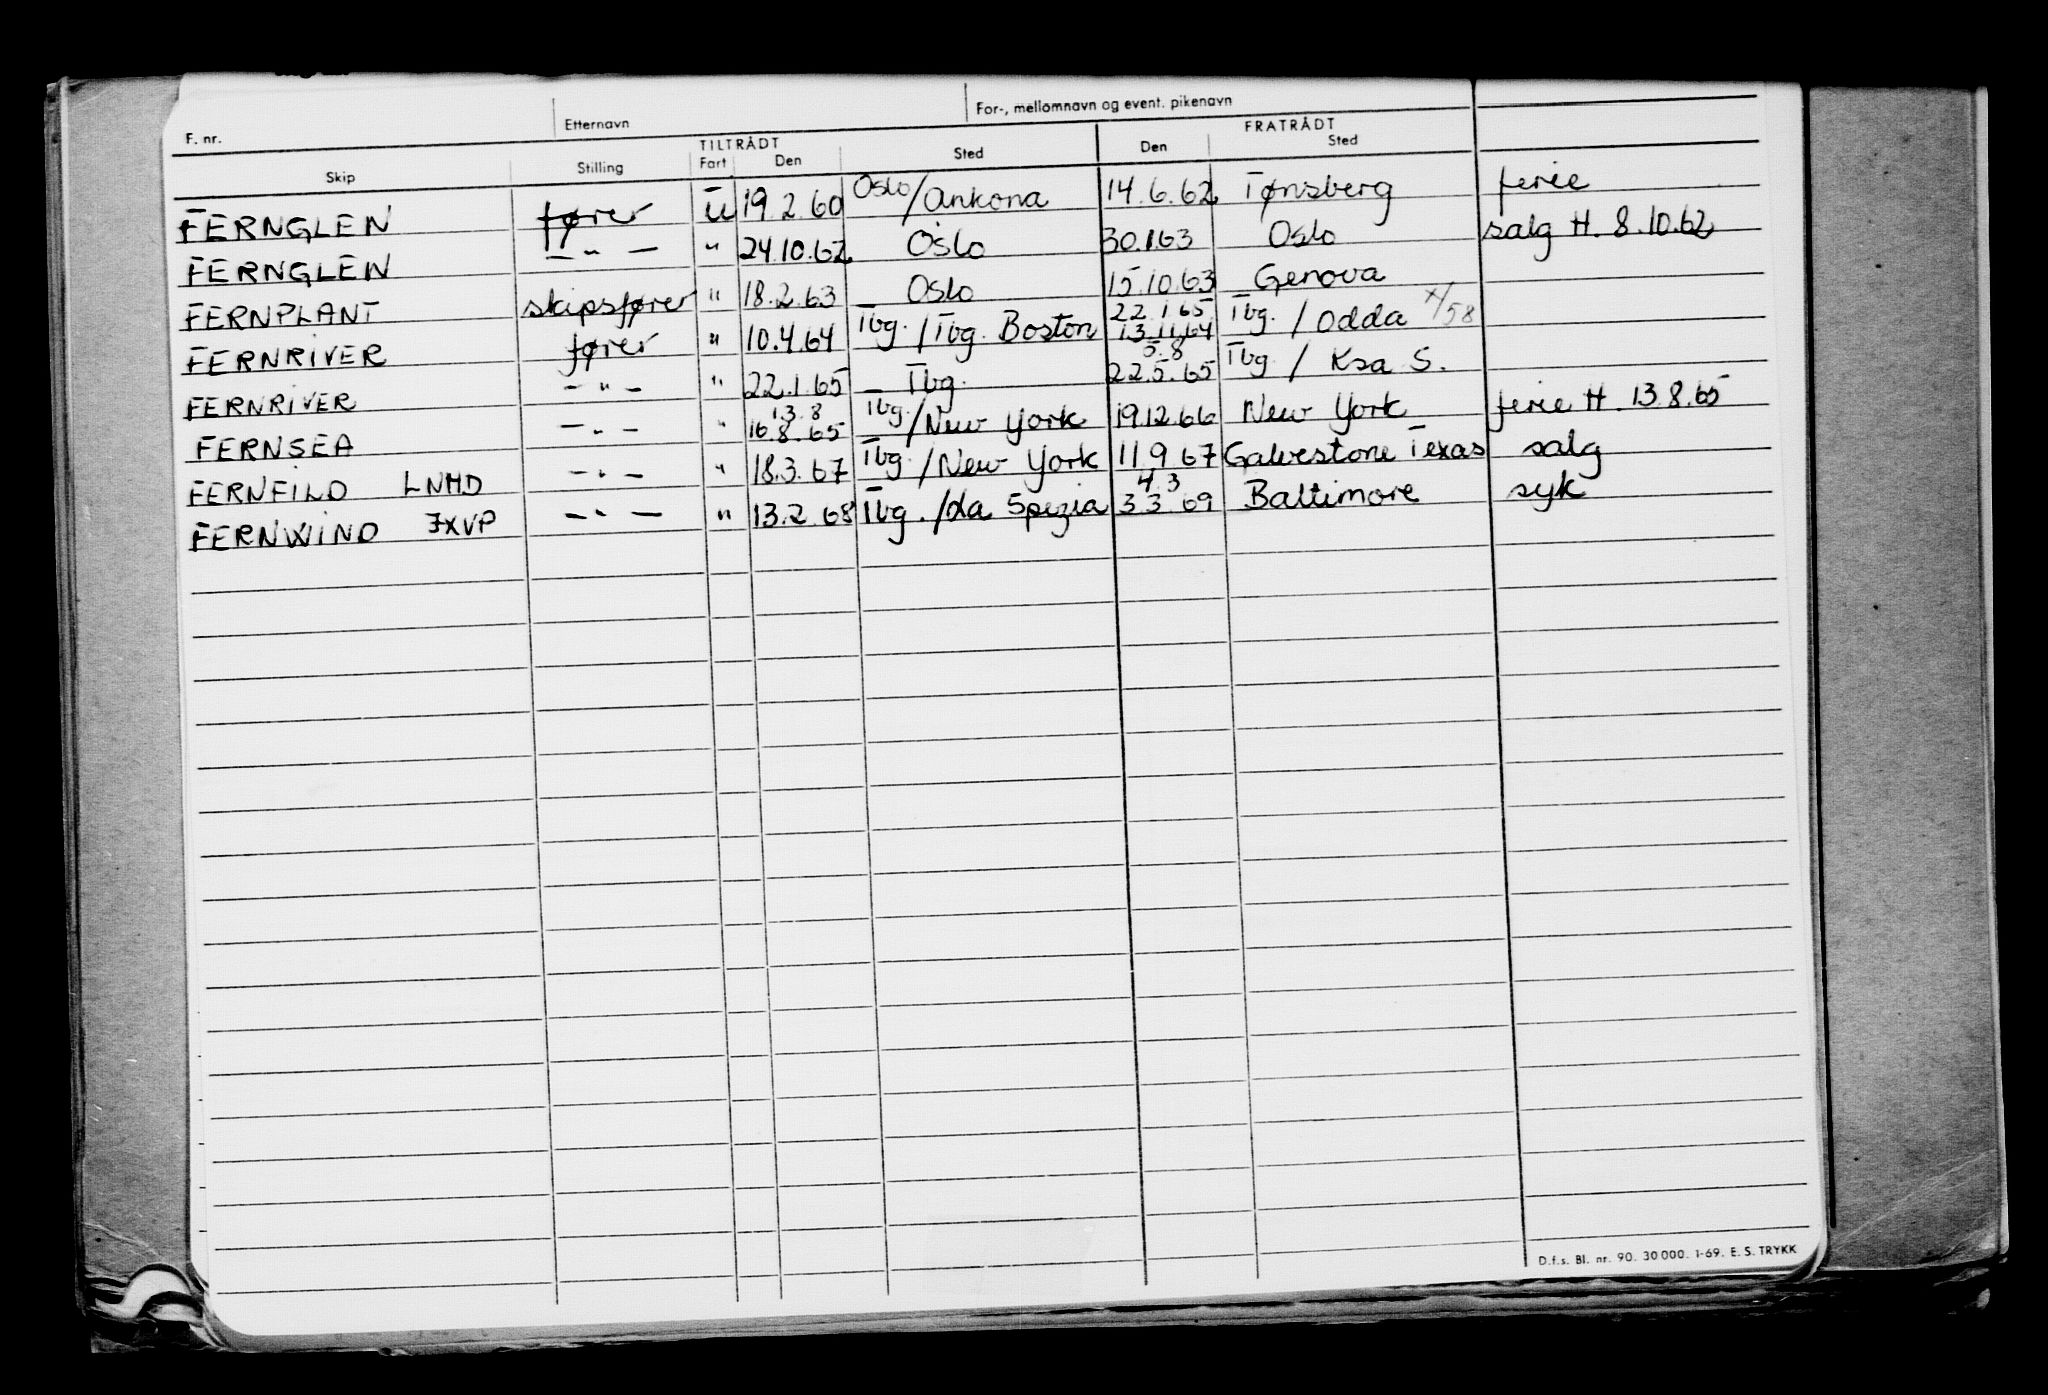 F. nr. Etternavn For-, mellomnavn og event. pikenavn
TILTRÅDT FRATRÅDT
Skip Stilling Fart Den Sted Den Sted
FERNGLEN fører U 19.2.60 Oslo/Ankona 14.6.62 Tønsberg ferie
FERNGLEN — " — " 24.10.62 Oslo 30.1.63 Oslo salg H. 8.10.62
FERNPLANT skipsfører " 18.2.63 Oslo 15.10.63 Genova
FERNRIVER fører " 10.4.64 Tbg./Tbg. Boston 22.1.65 13.11.64 Tbg. / Odda x/58
FERNRIVER — " — " 22.1.65 Tbg. 5.8 22.5.65 Tbg / Ksa S.
FERNSEA — " — " 13.8 16.8.65 Tbg./New York 19.12.66 New York ferie H. 13.8.65
FERNFILD LNHD — " — " 18.3.67 Tbg./New York 11.9.67 Galvestone Texas salg
FERNWIND JXVP — " — " 13.2.68 Tbg./La Spezia 4.3 3.3.69 Baltimore syk
D.f.s. Bl. nr. 90. 30 000. 1-69. E. S. TRYKK